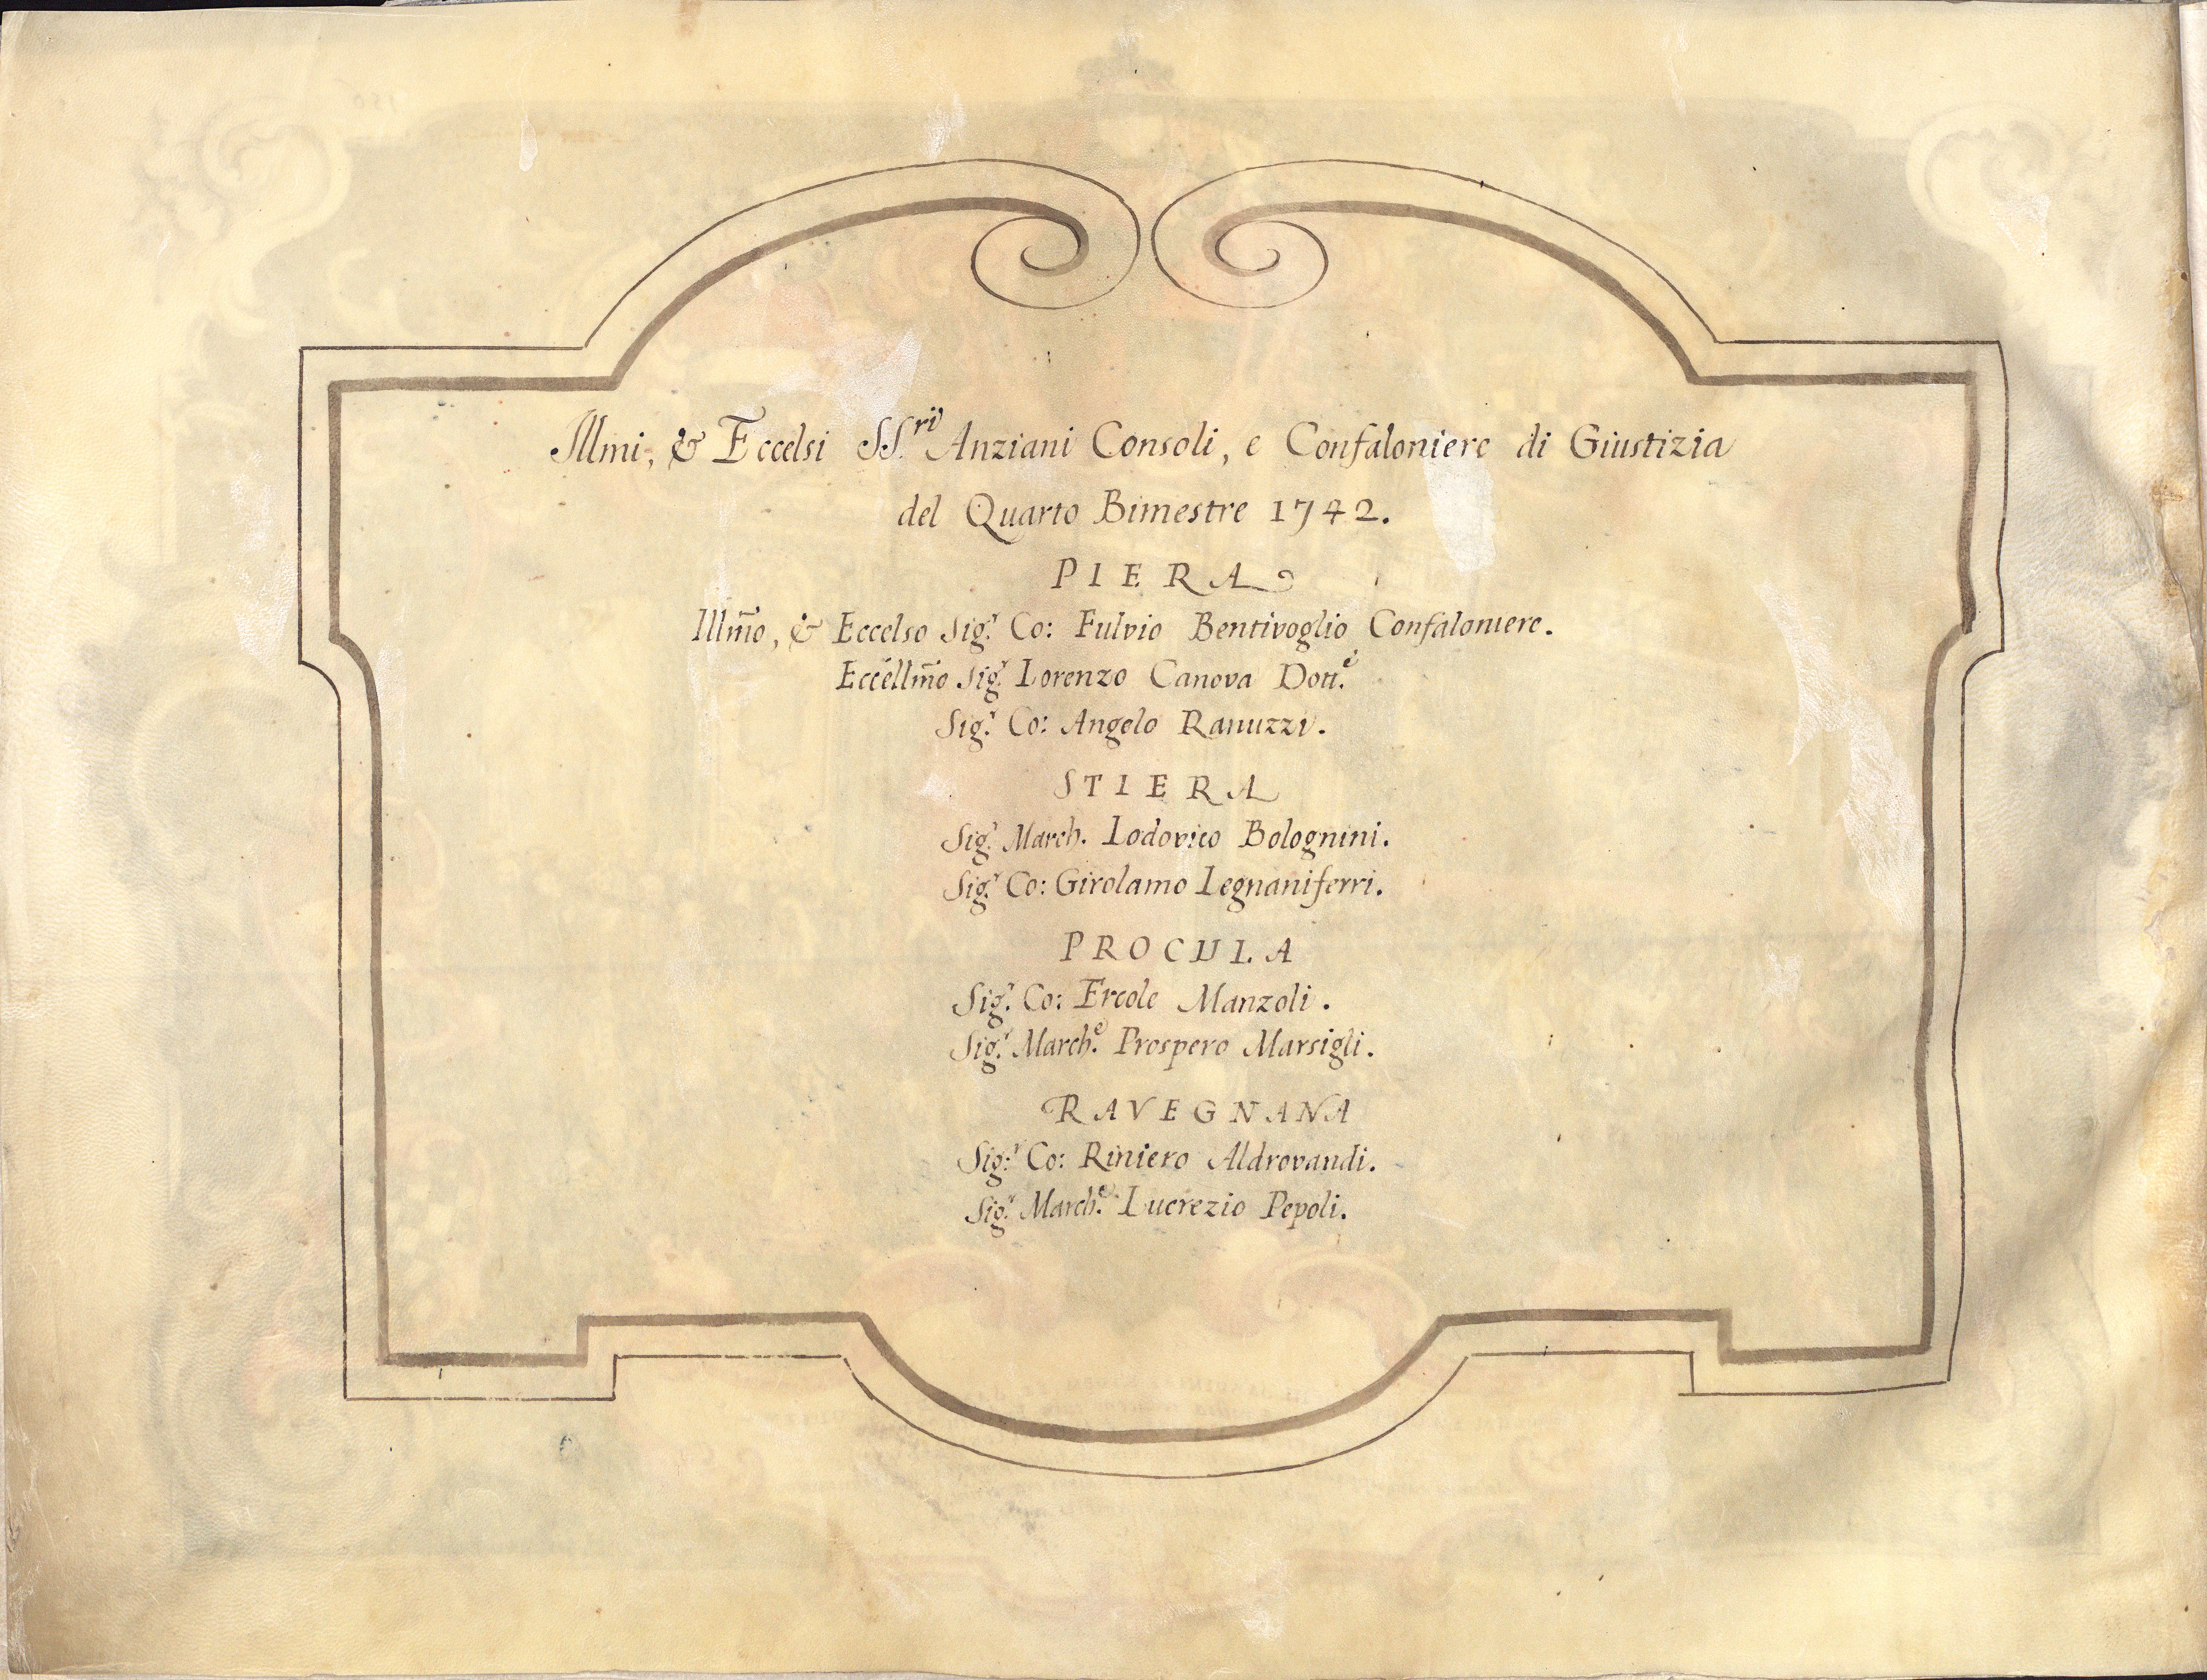 Illmi, & Eccelsi SS.ri Anziani Consoli, e Confaloniere di Giustizia
del Quarto Bimestre 1742.
PIERA
Illm̃o, & Eccelso Sig.r Co: Fulvio Bentivoglio Confaloniere.
Eccẽllm̃o Sig.r Lorenzo Canova Dott.e
Sig.r Co: Angelo Ranuzzi.
STIERA
Sig.r March. Lodovico Bolognini.
Sig.r Co: Girolamo Legnaniferri.
PROCULA
Sig.r Co: Ercole Manzoli.
Sig.r March.e Prospero Marsigli.
RAVEGNANA
Sig.r Co: Riniero Aldrovandi.
Sig.r March.e Lucrezio Pepoli.